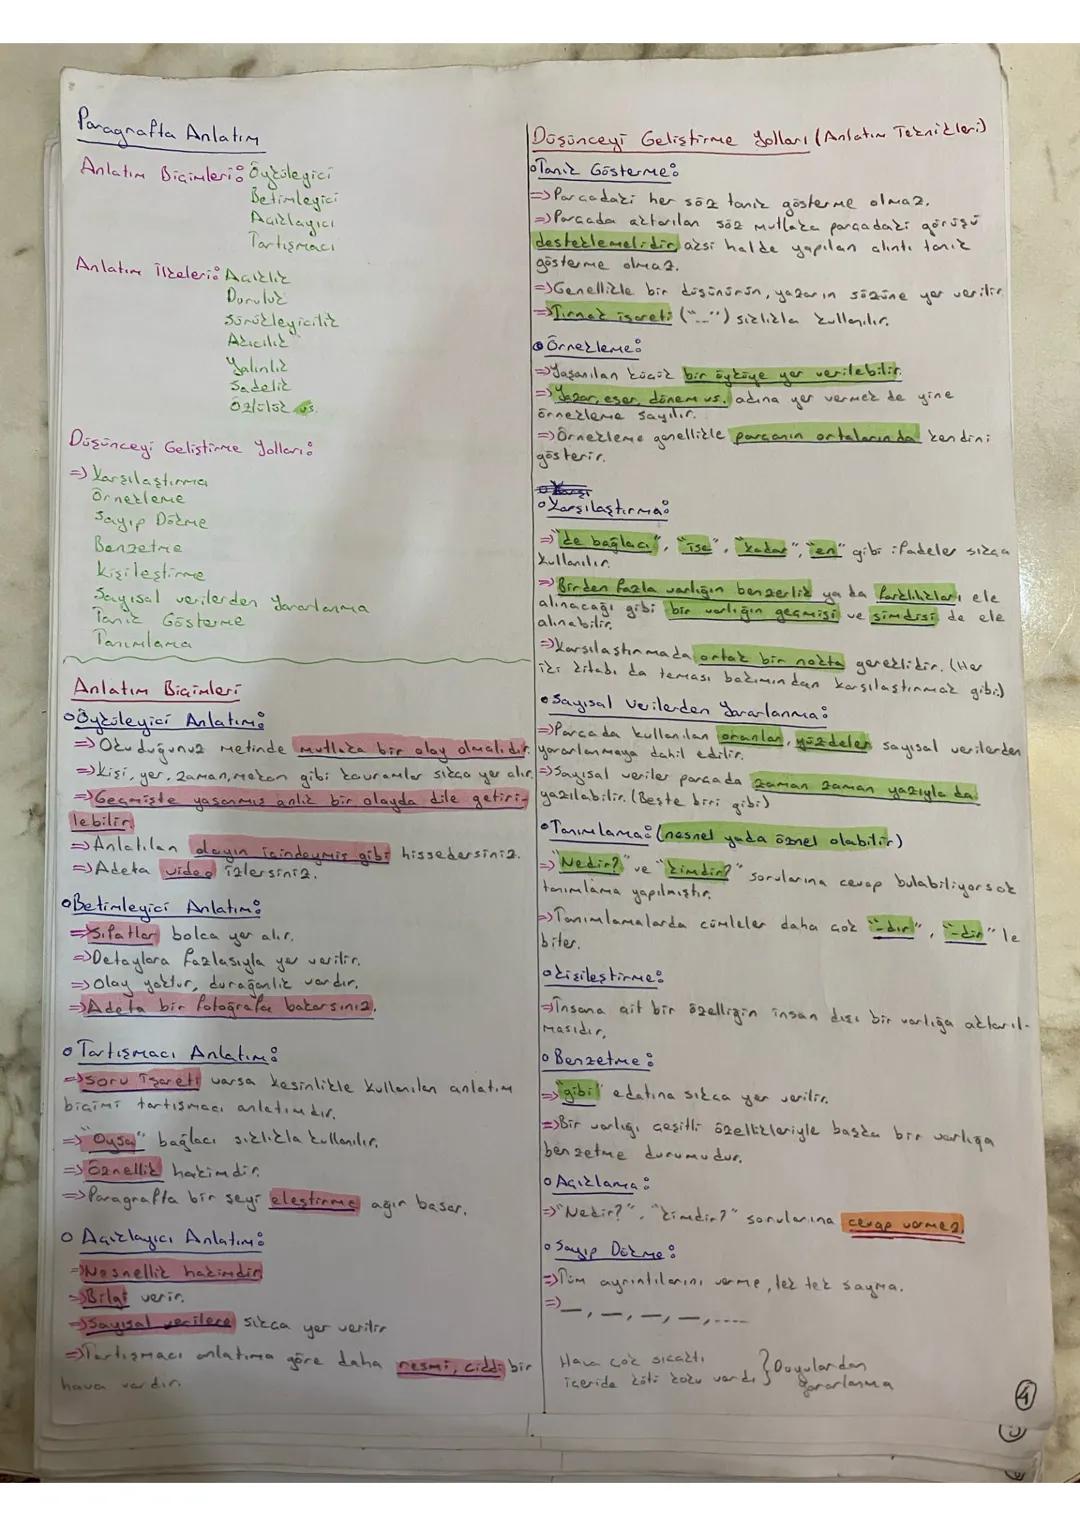 Paragrafta Anlatım
Anlatım Biçimleri: Öyküleyici
Betimleyici
Açıklayıcı
Tartışmacı
Anlatım İlkeleri: Açıklık
Duruluk
Sürükleyicilik
Akıcılık
Yalınlık
Sadelik
Özlülük vs.
Düşünceyi Geliştirme Yolları:
=> Karşılaştırma
Örnekleme
Sayıp Dökme
Benzetme
Kişileştirme
Sayısal verilerden Yararlanma
Tanık Gösterme
Tanımlama
Anlatım Biçimleri
o Öyküleyici Anlatım:
=> Okuduğunuz metinde mutlaka bir olay olmalıdır.
=> Kişi, yer, zaman, mekan gibi kavramlar sıkça yer alır.
=> Geçmişte yaşanmış anlık bir olayda dile getiri-
lebilir.
=> Anlatılan olayın içindeymiş gibi hissedersiniz.
=> Adeta video izlersiniz.
o Betimleyici Anlatım:
=> Sıfatlar bolca yer alır.
=> Detaylara fazlasıyla yer verilir.
=> Olay yoktur, durağanlık vardır.
=> Adeta bir fotoğrafa bakarsınız.
o Tartışmacı Anlatım:
=> Soru İşareti varsa kesinlikle kullanılan anlatım
biçimi tartışmacı anlatımdır.
=> "Oysa" bağlacı sıklıkla kullanılır.
=> Öznellik hakimdir.
=> Paragrafta bir şeyi eleştirme ağır basar.
o Açıklayıcı Anlatım:
=> Nesnellik hakimdir
=> Bilgi verir.
=> Sayısal verilere sıkça yer verilir
=> Tartışmacı anlatıma göre daha resmi, ciddi bir
hava vardır.
Düşünceyi Geliştirme Yolları (Anlatım Teknikleri)
o Tanık Gösterme:
=> Parçadaki her söz tanık gösterme olmaz.
=> Parçada aktarılan söz mutlaka parçadaki görüşü
desteklemelidir, aksi halde yapılan alıntı tanık
gösterme olmaz.
=> Genellikle bir düşünürün, yazarın sözüne yer verilir.
=> Tırnak işareti ("__") sıklıkla kullanılır.
o Örnekleme:
=> Yaşanılan küçük bir öyküye yer verilebilir.
=> Yazar, eser, dönem vs. adına yer vermek de yine
örnekleme sayılır.
=> Örnekleme genellikle parçanın ortalarında kendini
gösterir.
o Karşılaştırma:
=> "de bağlacı", "ise", "kadar", "en" gibi ifadeler sıkça
kullanılır.
=> Birden fazla varlığın benzerlik ya da farklılıkları ele
alınacağı gibi bir varlığın geçmişi ve şimdisi de ele
alınabilir.
=> Karşılaştırmada ortak bir nokta gereklidir. (Her
iki kitabı da teması bakımından karşılaştırmak gibi)
o Sayısal Verilerden Yararlanma:
=> Parçada kullanılan oranlar, yüzdeler sayısal verilerden
yararlanmaya dahil edilir.
=> Sayısal veriler parçada zaman zaman yazıyla da
yazılabilir. (Beşte biri gibi)
o Tanımlama: (nesnel yada öznel olabilir)
=> "Nedir?" ve "kimdir?" sorularına cevap bulabiliyorsak
tanımlama yapılmıştır.
=> Tanımlamalarda cümleler daha çok "-dır", "-dir" le
biter.
o Kişileştirme:
=> İnsana ait bir özelliğin insan dışı bir varlığa aktarıl-
masıdır.
o Benzetme:
=> "gibi" edatına sıkça yer verilir.
=> Bir varlığı çeşitli özellikleriyle başka bir varlığa
benzetme durumudur.
o Açıklama:
=> "Nedir?", "kimdir?" sorularına cevap vermez.
o Sayıp Dökme:
=> Tüm ayrıntılarını verme, tek tek sayma.
=> __, __, __, __, ....
Hava çok sıcaktı
içeride kötü koku vardı } Duyulardan
Yararlanma
4